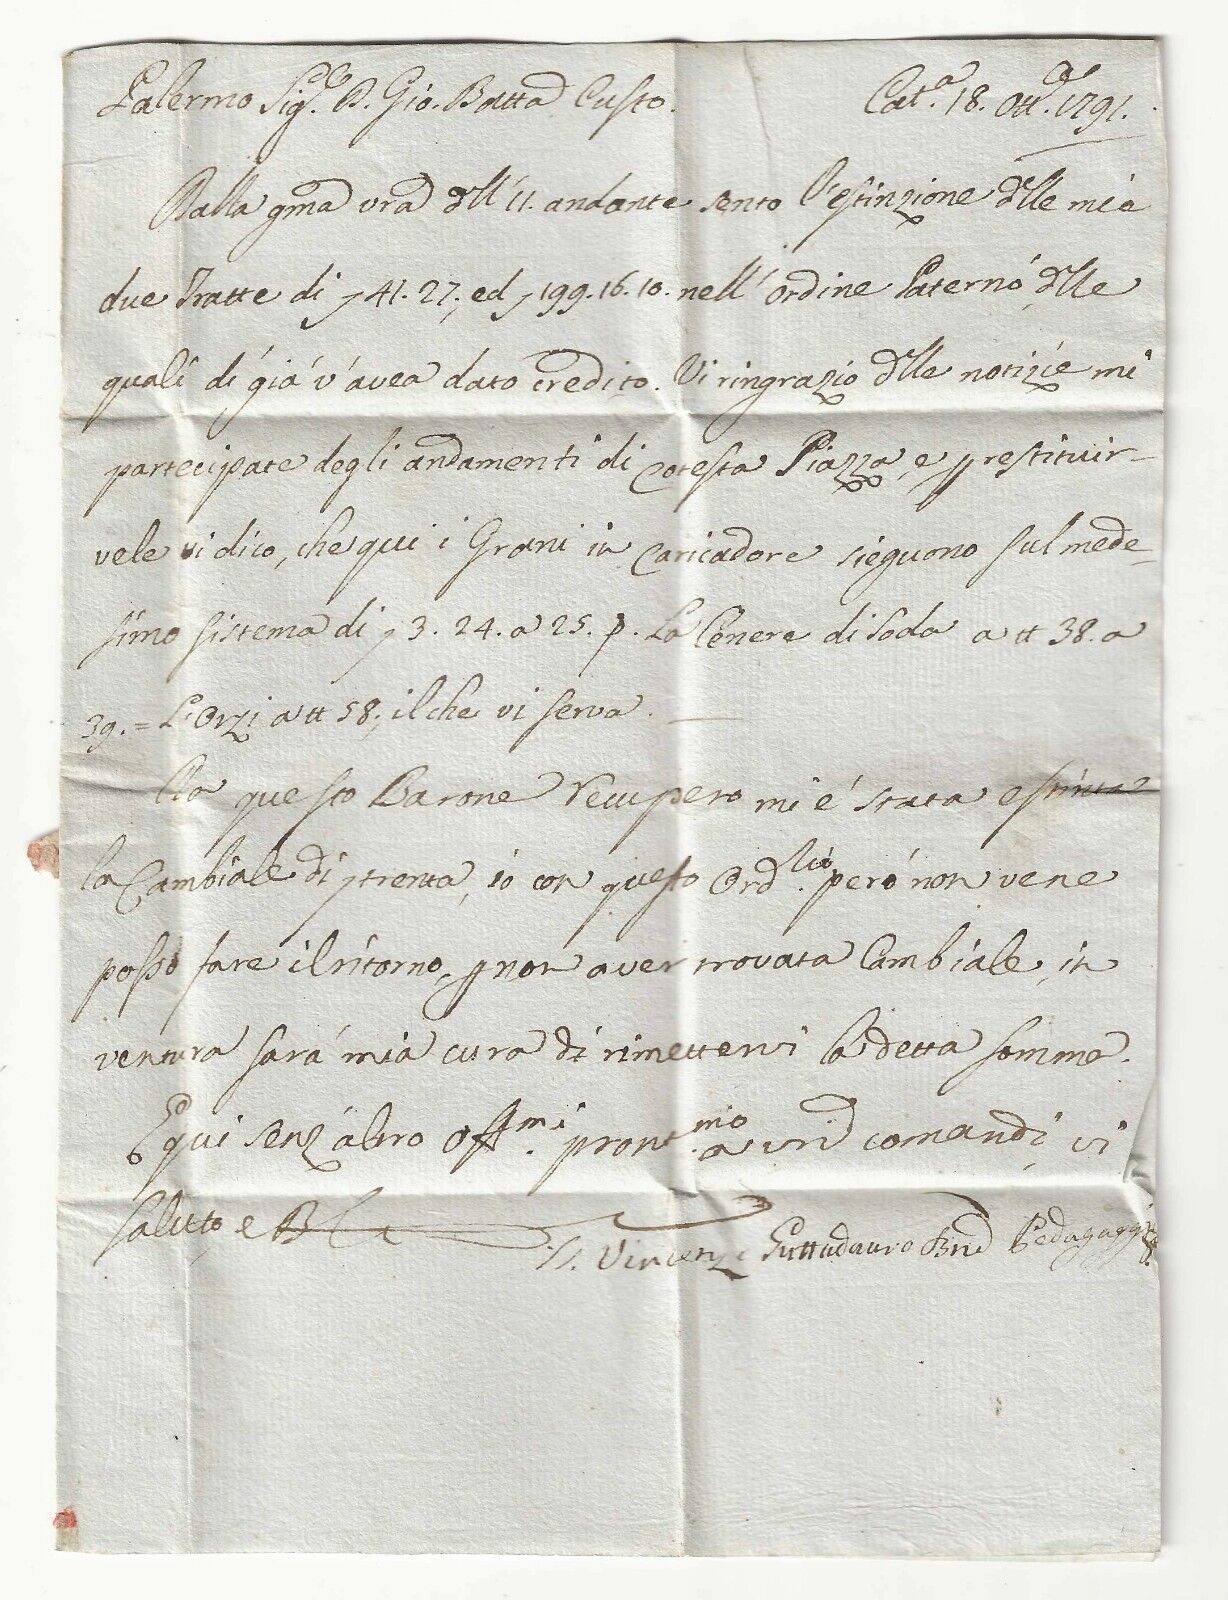 Palermo Sig.r D. Gio. Batta Custo. Cat.a 18. Ott.e 1791.
Dalla gma vra dll' 11. andante sento l'estinzione dlle mie
due Tratte di 41. 27., ed 199. 16. 10. nell' ordine Paternó, dlle
quali di giá v'avea dato credito. Vi ringrazio dlle notizie mi
partecipate degli andamenti di cotesta Piazza, e p restituir-
vele vi dico, che qui i Grani in Caricadore sieguono sul mede-
simo sistema di 3. 24. a 25. p. La Cenere di Soda a tt 38. a
39. = L'Orzi a tt 58., il che vi serva.
Da questo Barone Recupero mi é stata estinta
la Cambiale di trenta, io con questo Ord.rio peró non vene
posso fare il ritorno, p non aver trovata Cambiale, in
ventura sará mia cura di rimettervi la detta somma.
E qui senz'altro off.mi pront.mo a vri comandi, vi
saluto, e B
Vincenzo Guttadauro Bne Pedagaggi